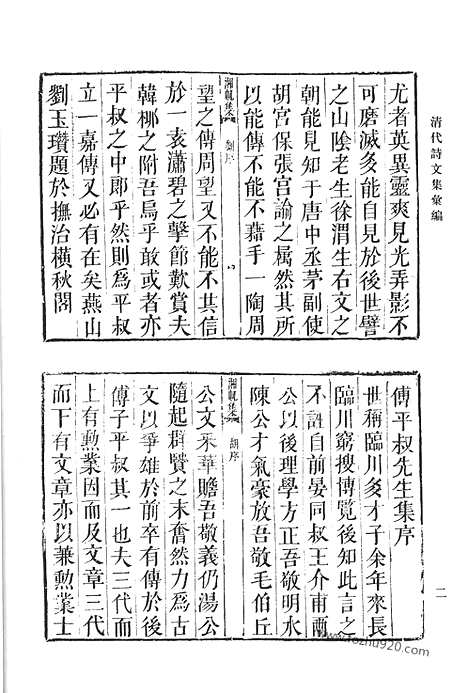 清代詩文集彙編
尤者英異靈爽見光弄影不
可磨滅多能自見於後世譬
之山陰老生徐渭生右文之
朝能見知于唐中丞茅副使
胡宮保張宮諭之屬然其所
以能傳不能不藉手一陶周
湘帆集 劉序
望之傳周望又不能不其信
於一袁瀟碧之擊節歎賞夫
韓梛之附吾烏乎敢或者亦
平叔之中郎乎然則為平叔
立一嘉傳又必有在矣燕山
劉玉瓚題於撫治橫秋閣
傅平叔先生集序
世稱臨川多才子余年來長
臨川窮搜博覧後知此言之
不誣自前晏同叔王介甫兩
公以後理學方正吾敬明水
陳公才氣豪放吾敬毛伯丘
湘帆集 胡序
公文采華贍吾敬義仍湯公
隨起群賢之末奮然力為古
文以爭雄於前卒有傳於後
傅子平叔其一也夫三代而
上有勲業因而及文章三代
而下有文章亦以兼勲業士
二
www.fozhu920.com